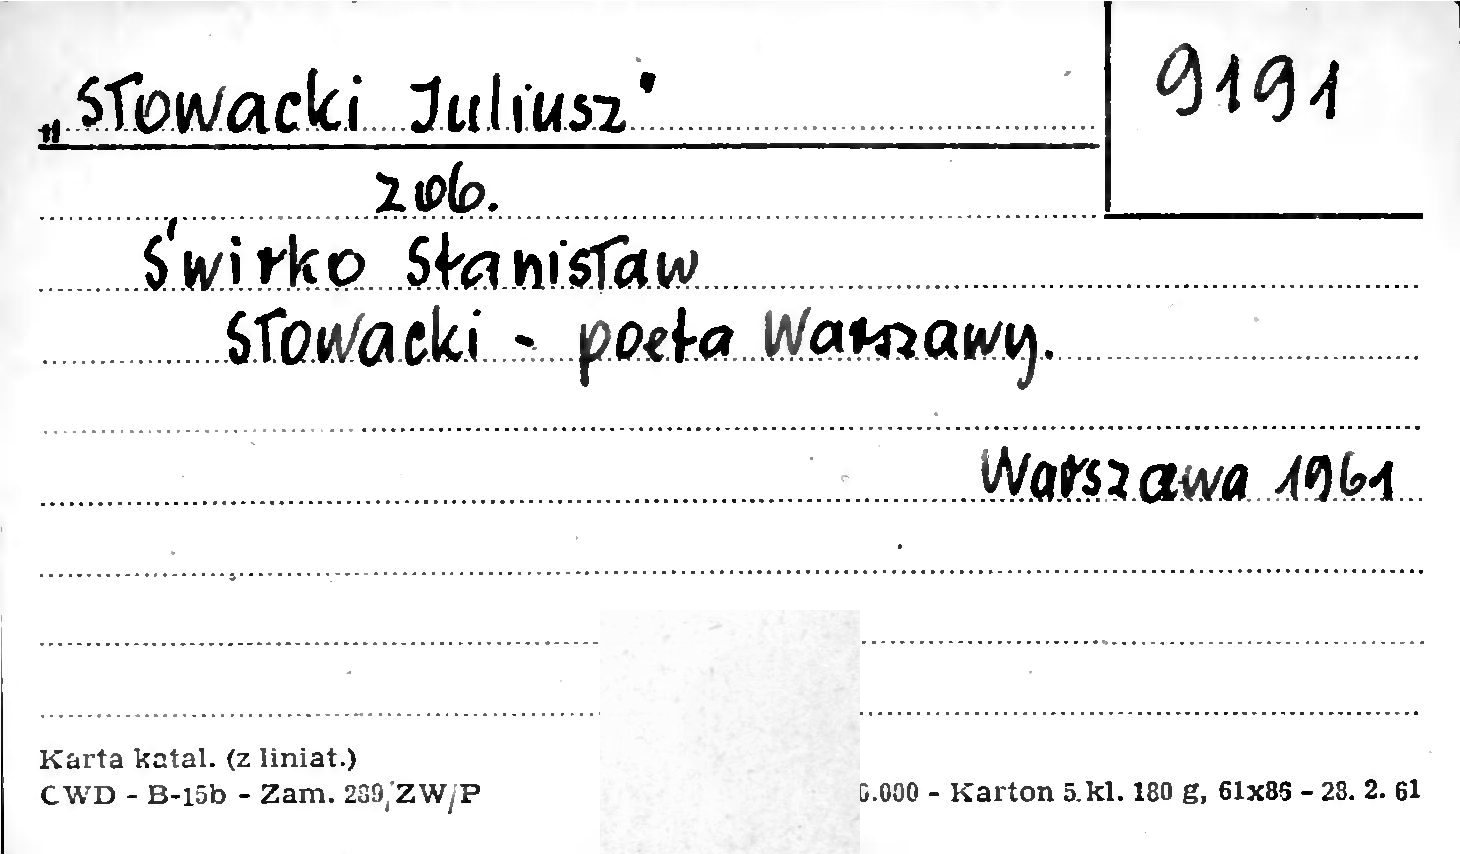 „Słowacki Juliusz"
9191
zob.
Świrko Stanisław
Słowacki - poeta Warszawy.
Warszawa 1961
Karta katal. (z liniat.)
CWD - B-15b - Zam. 289/ZW/P
.000 - Karton 5 kl. 180 g, 61x86 - 28. 2. 61